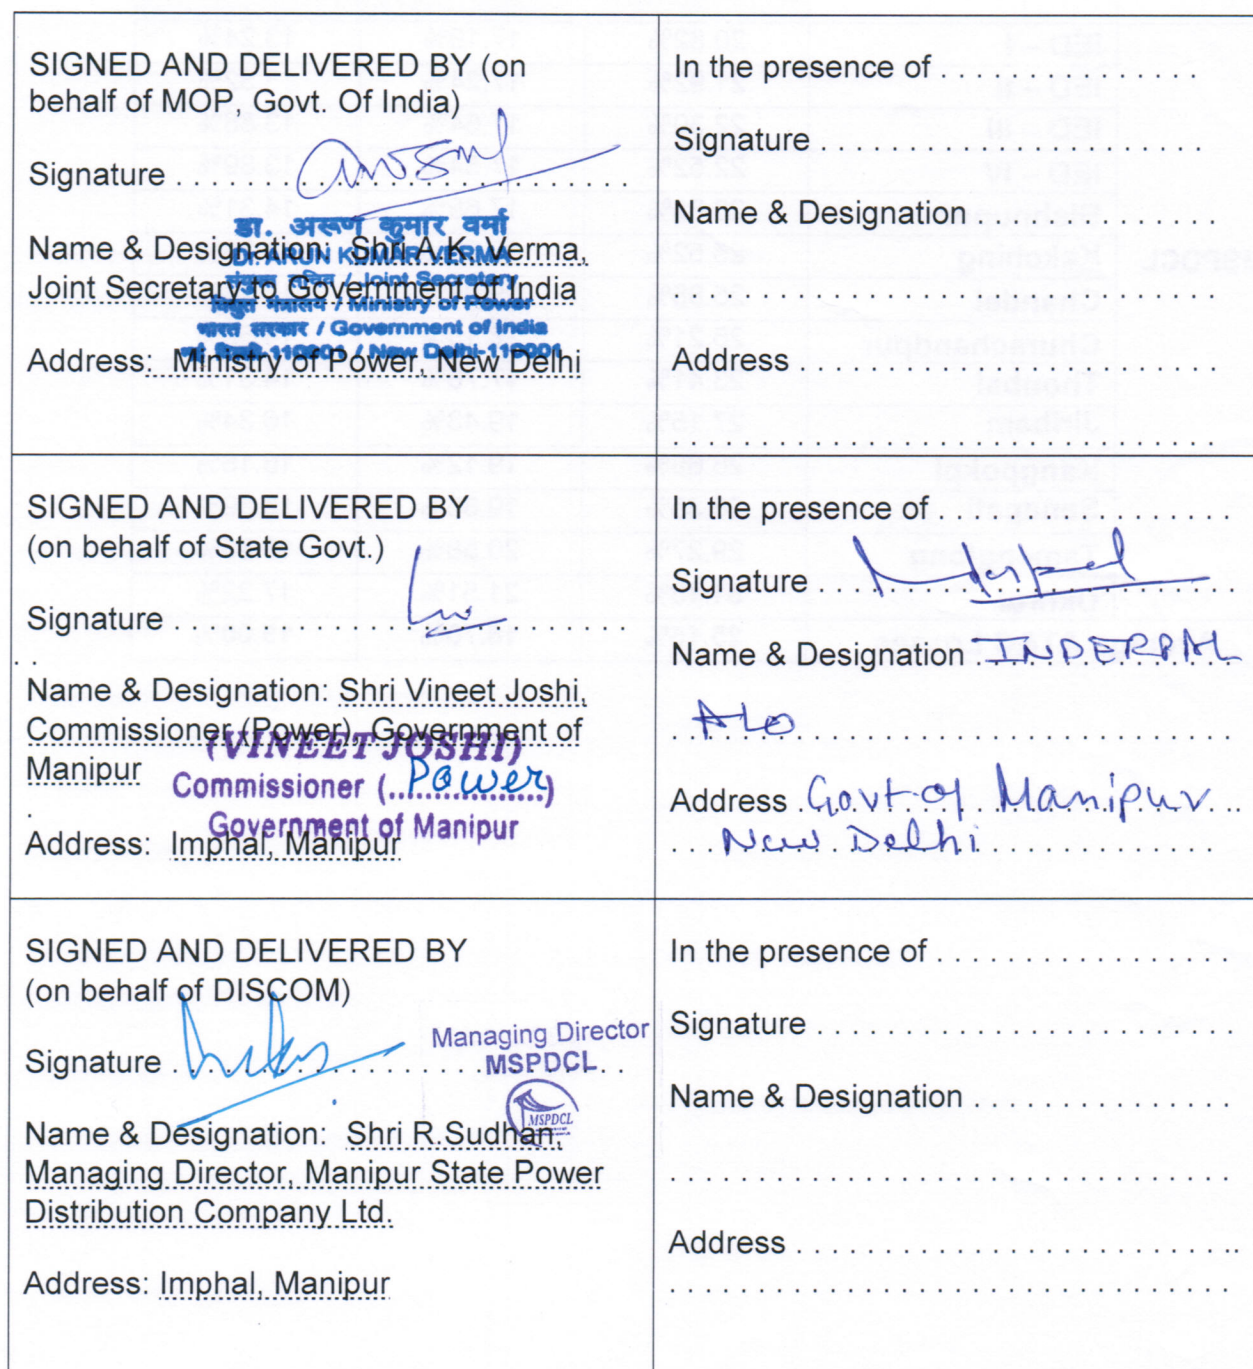 SIGNED AND DELIVERED BY (on
behalf of MOP, Govt. Of India)
Signature . . . . . . . . . . . . . . . . . . . . . . . . . .
डा. अरूण कुमार वर्मा
Name & Designation: Shri A.K. Verma,
Dr ARUN KUMAR VERMA
संयुक्त सचिव / Joint Secretary
Joint Secretary to Government of India
विद्युत मंत्रालय / Ministry of Power
भारत सरकार / Government of India
नई दिल्ली-110001 / New Delhi-110001
Address: Ministry of Power, New Delhi
In the presence of . . . . . . . . . . . . . . . .
Signature . . . . . . . . . . . . . . . . . . . . . . . .
Name & Designation . . . . . . . . . . . . . . .
Address . . . . . . . . . . . . . . . . . . . . . . . . .
SIGNED AND DELIVERED BY
(on behalf of State Govt.)
Signature . . . . . . . . . . . . . . . . . . . . . . . . . . . .
Name & Designation: Shri Vineet Joshi,
Commissioner (Power), Government of
Manipur
(VINEET JOSHI)
Commissioner (..Power..)
Government of Manipur
Address: Imphal, Manipur
In the presence of . . . . . . . . . . . . . . . . .
Signature . . . . . . . . . . . . . . . . . . . . . . . . .
Name & Designation INDERPAL
ALO
Address Govt of Manipur
New Delhi
SIGNED AND DELIVERED BY
(on behalf of DISCOM)
Signature . . . . . . . . . . . . . . . . . . . . . . . . . . . .
Managing Director
MSPDCL
MSPDCL
Name & Designation: Shri R.Sudhan,
Managing Director, Manipur State Power
Distribution Company Ltd.
Address: Imphal, Manipur
In the presence of . . . . . . . . . . . . . . . . .
Signature . . . . . . . . . . . . . . . . . . . . . . . . .
Name & Designation . . . . . . . . . . . . . . .
Address . . . . . . . . . . . . . . . . . . . . . . . . . ..